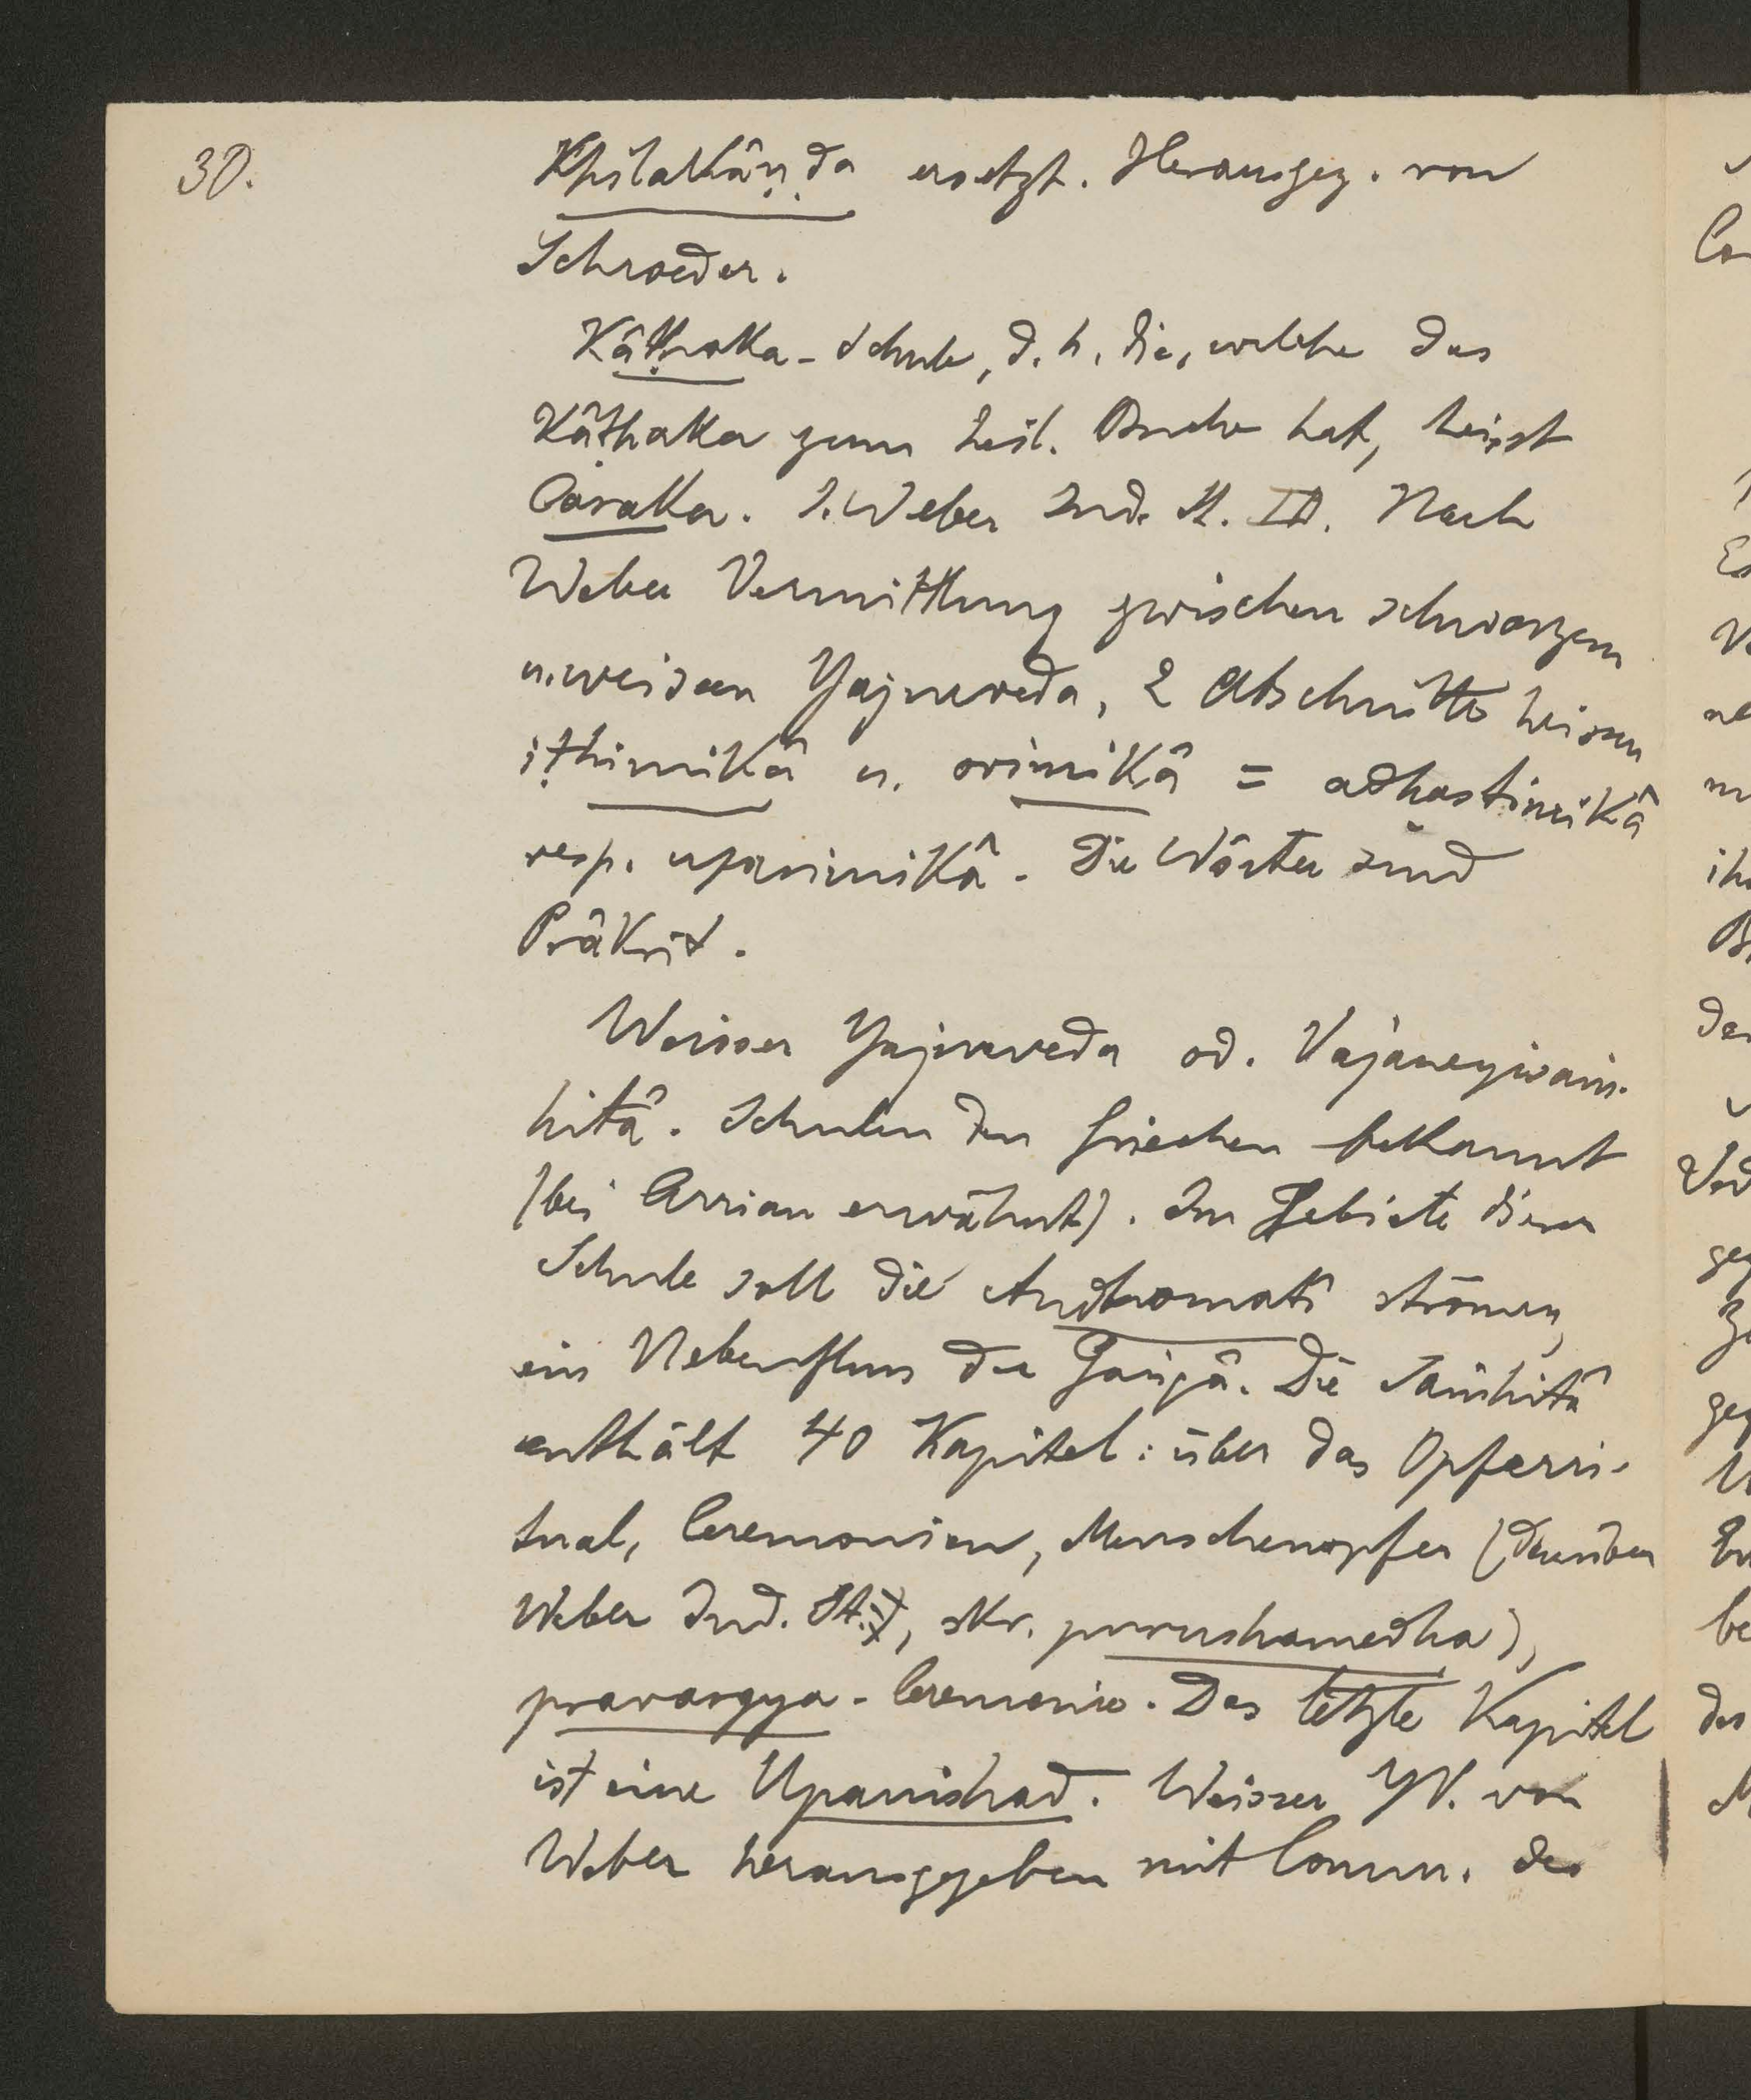 30.
Khilakâṇḍa ersetzt. Herausgeg. von
Schroeder.
Kâṭhaka-Schule, d. h. die, welche das
Kâṭhaka zum heil. Buche hat, heisst
Caraka. S. Weber Ind. St. III. Nach
Weber Vermittlung zwischen schwarzem
u. weissen Yajurveda, 2 Abschnitte heissen
iṭhimikâ u. orimikâ = adhastimikâ
resp. uparimikâ. Die Wörter sind
Prâkrit.
Weisser Yajurveda od. Vâjaneyisaṁ-
hitâ. Schulen den Griechen bekannt
(bei Arrian erwähnt). Im Gebiete dieser
Schule soll die Andhomatî strömen,
ein Nebenfluss der Gaṅgâ. Die Saṁhitâ
enthält 40 Kapitel: über das Opferri-
tual, Ceremonien, Menschenopfer (darüber
Weber Ind. St. I, skr. purushamedha),
pravargya-Ceremonie. Das letzte Kapitel
ist eine Upanishad. Weisser YV. von
Weber herausgegeben mit Comm. des